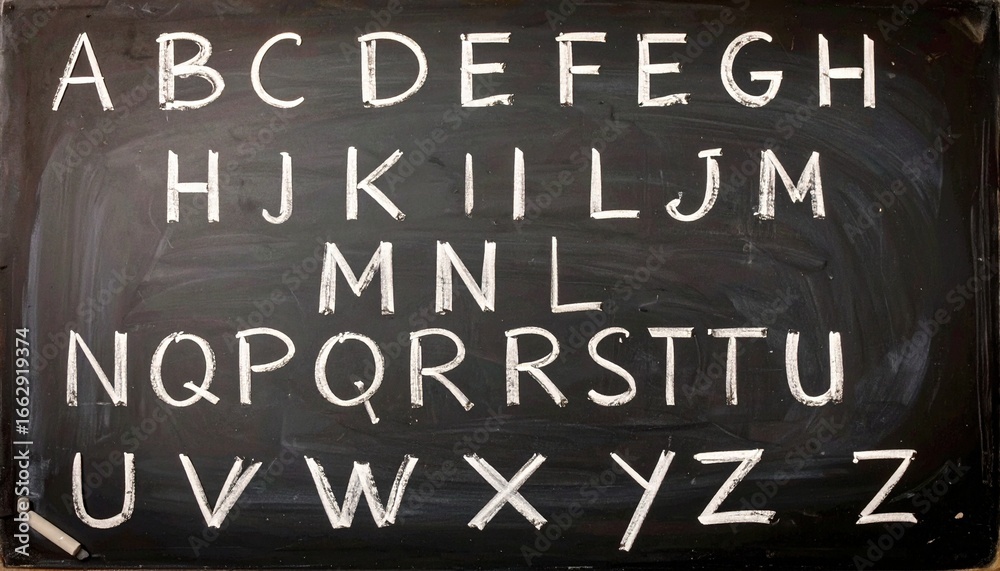 A B C D E F E G H
H J K I I L J M
M N L
N Q P Q R R S T T U
U V W X Y Z Z
Adobe Stock | #1662919374